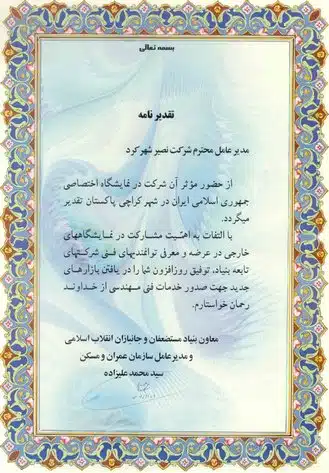 بسمه تعالی
تقدیر نامه
مدیر عامل محترم شرکت نصیر شهرکرد
از حضور مؤثر آن شرکت در نمایشگاه اختصاصی
جمهوری اسلامی ایران در شهر کراچی پاکستان تقدیر
میگردد.
با التفات به اهمیت مشارکت در نمایشگاههای
خارجی در عرضه و معرفی توانمندیهای فنی شرکتهای
تابعه بنیاد، توفیق روزافزون شما را در یافتن بازارهای
جدید جهت صدور خدمات فنی مهندسی از خداوند
رحمان خواستارم.
معاون بنیاد مستضعفان و جانبازان انقلاب اسلامی
و مدیر عامل سازمان عمران و مسکن
سید محمد علیزاده